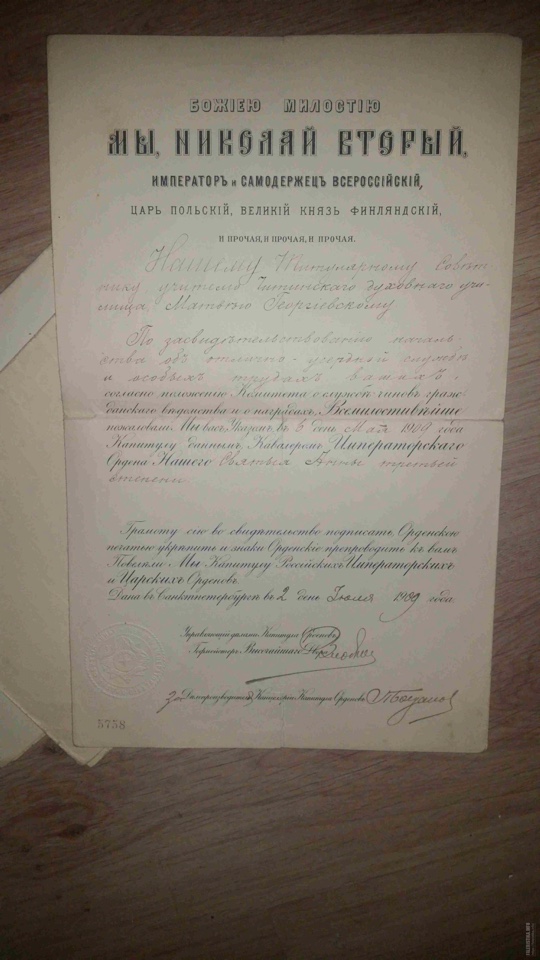 БОЖІЕЮ МИЛОСТІЮ
МЫ, НИКОЛАЙ ВТОРЫЙ,
ИМПЕРАТОРЪ и САМОДЕРЖЕЦЪ ВСЕРОССІЙСКІЙ,
ЦАРЬ ПОЛЬСКІЙ, ВЕЛИКІЙ КНЯЗЬ ФИНЛЯНДСКІЙ,
И ПРОЧАЯ, И ПРОЧАЯ, И ПРОЧАЯ.
Нашему Титулярному Совѣт-
нику, учителю Читинского духовнаго учи-
лища, Матвею Георгиевскому
По засвидѣтельствованію началь-
ства объ отлично-усердной службѣ
и особыхъ трудахъ вашихъ,
согласно положенію Комитета о службѣ чиновъ граж-
данскаго вѣдомства и о наградахъ, Всемилостивѣйше
пожаловали Мы васъ, Указомъ, въ 6 день Мая 1909 года
Капитулу даннымъ, Кавалеромъ Императорскаго
Ордена Нашего Святыя Анны третьей
степени
Грамоту сію во свидѣтельство подписать, Орденскою
печатью укрѣпить и знаки Орденскіе препроводить къ вамъ
Повелѣли Мы Капитулу Россійскихъ Императорскихъ
и Царскихъ Орденовъ.
Дана въ Санктпетербургѣ въ 2 день Іюля 1909 года.
Управляющій дѣлами Капитула Орденовъ,
Гофмейстеръ Высочайшаго Двора
За Дѣлопроизводителя Канцеляріи Капитула Орденовъ
5738